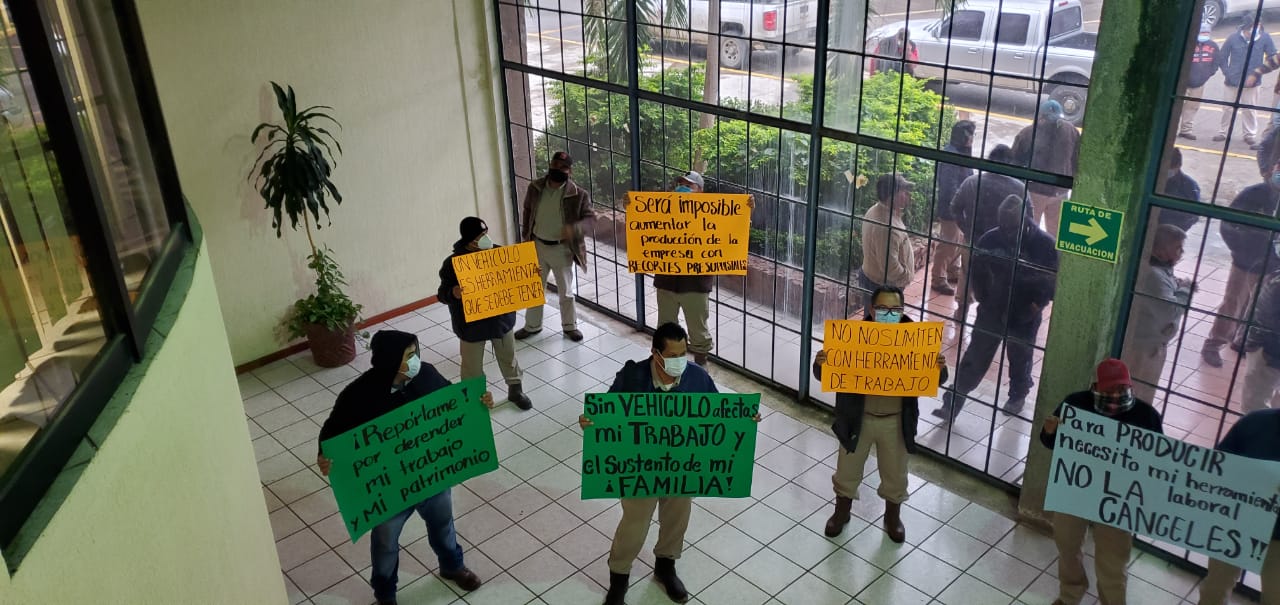 UN VEHÍCULO
ES HERRAMIENTA
QUE SE DEBE TENER
Será imposible
aumentar la
producción de la
empresa con
RECORTES PRESUPUESTALES
RUTA DE
EVACUACIÓN
¡Repórtame!
por defender
mi trabajo
y Mi patrimonio
Sin VEHICULO afectas
mi TRABAJO y
el sustento de mi
¡FAMILIA!
NO NOS LIMITEN
CON HERRAMIENTA
DE TRABAJO
Para PRODUCIR
necesito mi herramienta
laboral
NO LA
CANCELES!!